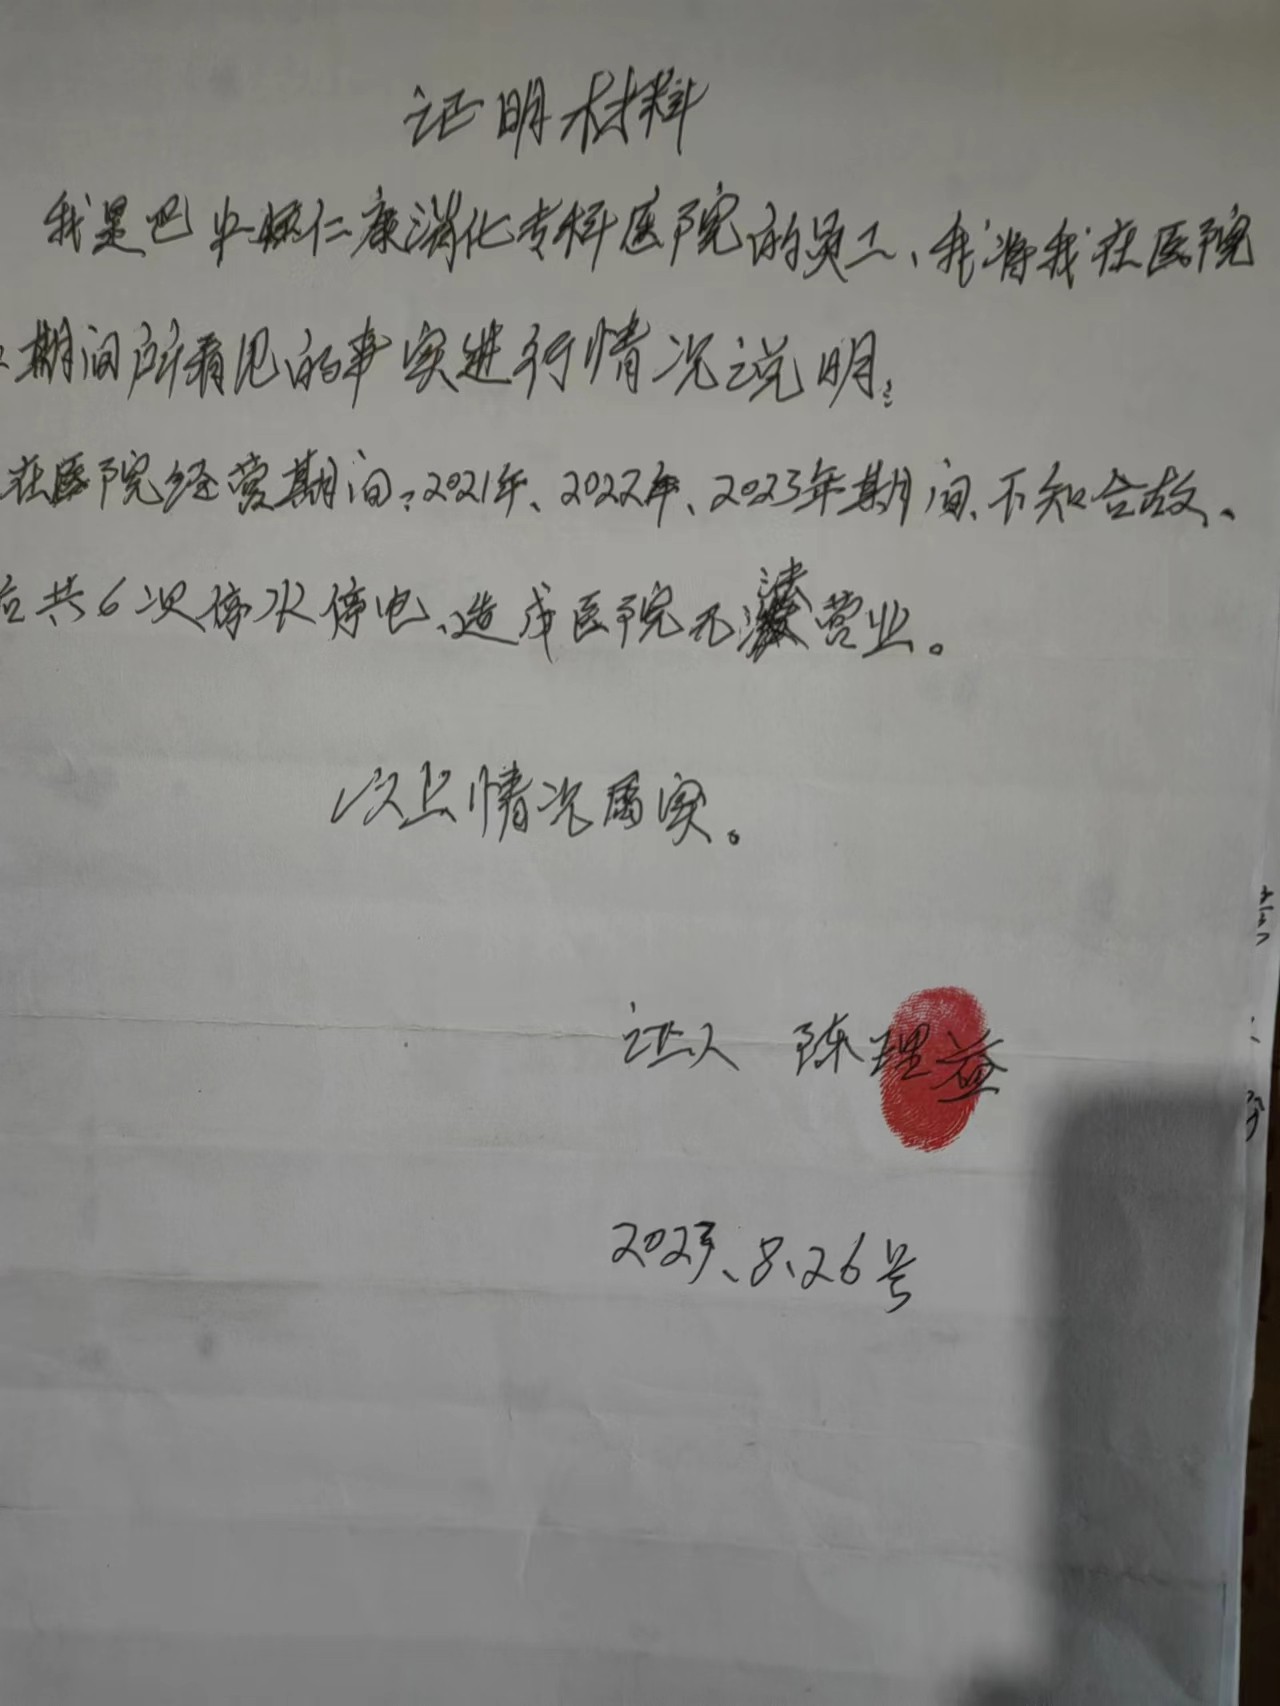 证明材料
我是巴中 仁康消化专科医院的员工、我将我在医院
期间所看见的事实进行情况说明：
在医院经营期间：2021年、2022年、2023年期间、不知合故、
后共6次停水停电、造成医院无法营业。
以上情况属实。
证人 陈理益
2023、8、26号